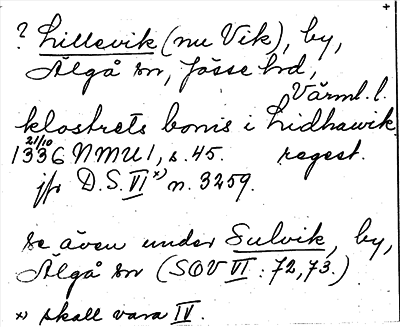 ? Lillevik (nu Vik), by,
Älgå sn, Jösse hd,
Värml. l.
klostrets bonis i Lidhawik
21/10
1336 NMU 1, s. 45. regest.
jfr D.S. VI x) n. 3259.
se även under Sulvik, by,
Älgå sn (SOV VI : 72, 73.)
x) skall vara IV.